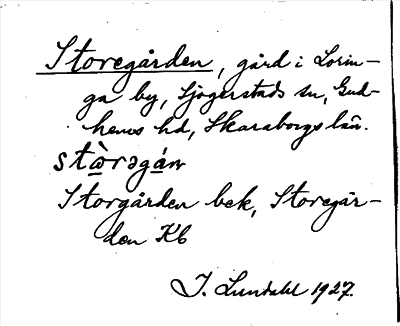 Storegården, gård i Lorin-
ga by, Sjogerstads sn, Gud-
hems hd, Skaraborgs län.
stɷ̀rəgán
Storgården bek, Storegår-
den Kb
I. Lundahl 1927.